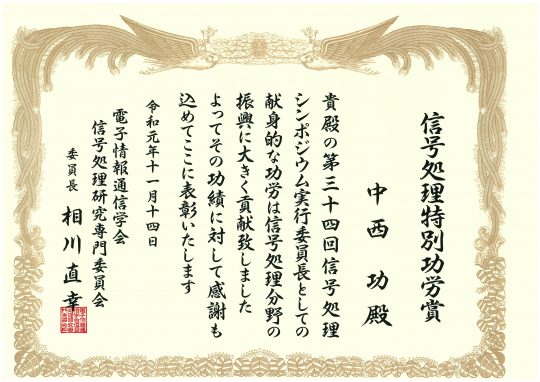 信号処理特別功労賞
中西 功殿
貴殿の第三十四回信号処理
シンポジウム実行委員長としての
献身的な功労は信号処理分野の
振興に大きく貢献致しました
よってその功績に対して感謝も
込めてここに表彰いたします
令和元年十一月十四日
電子情報通信学会
信号処理研究専門委員会
委員長 相川直幸